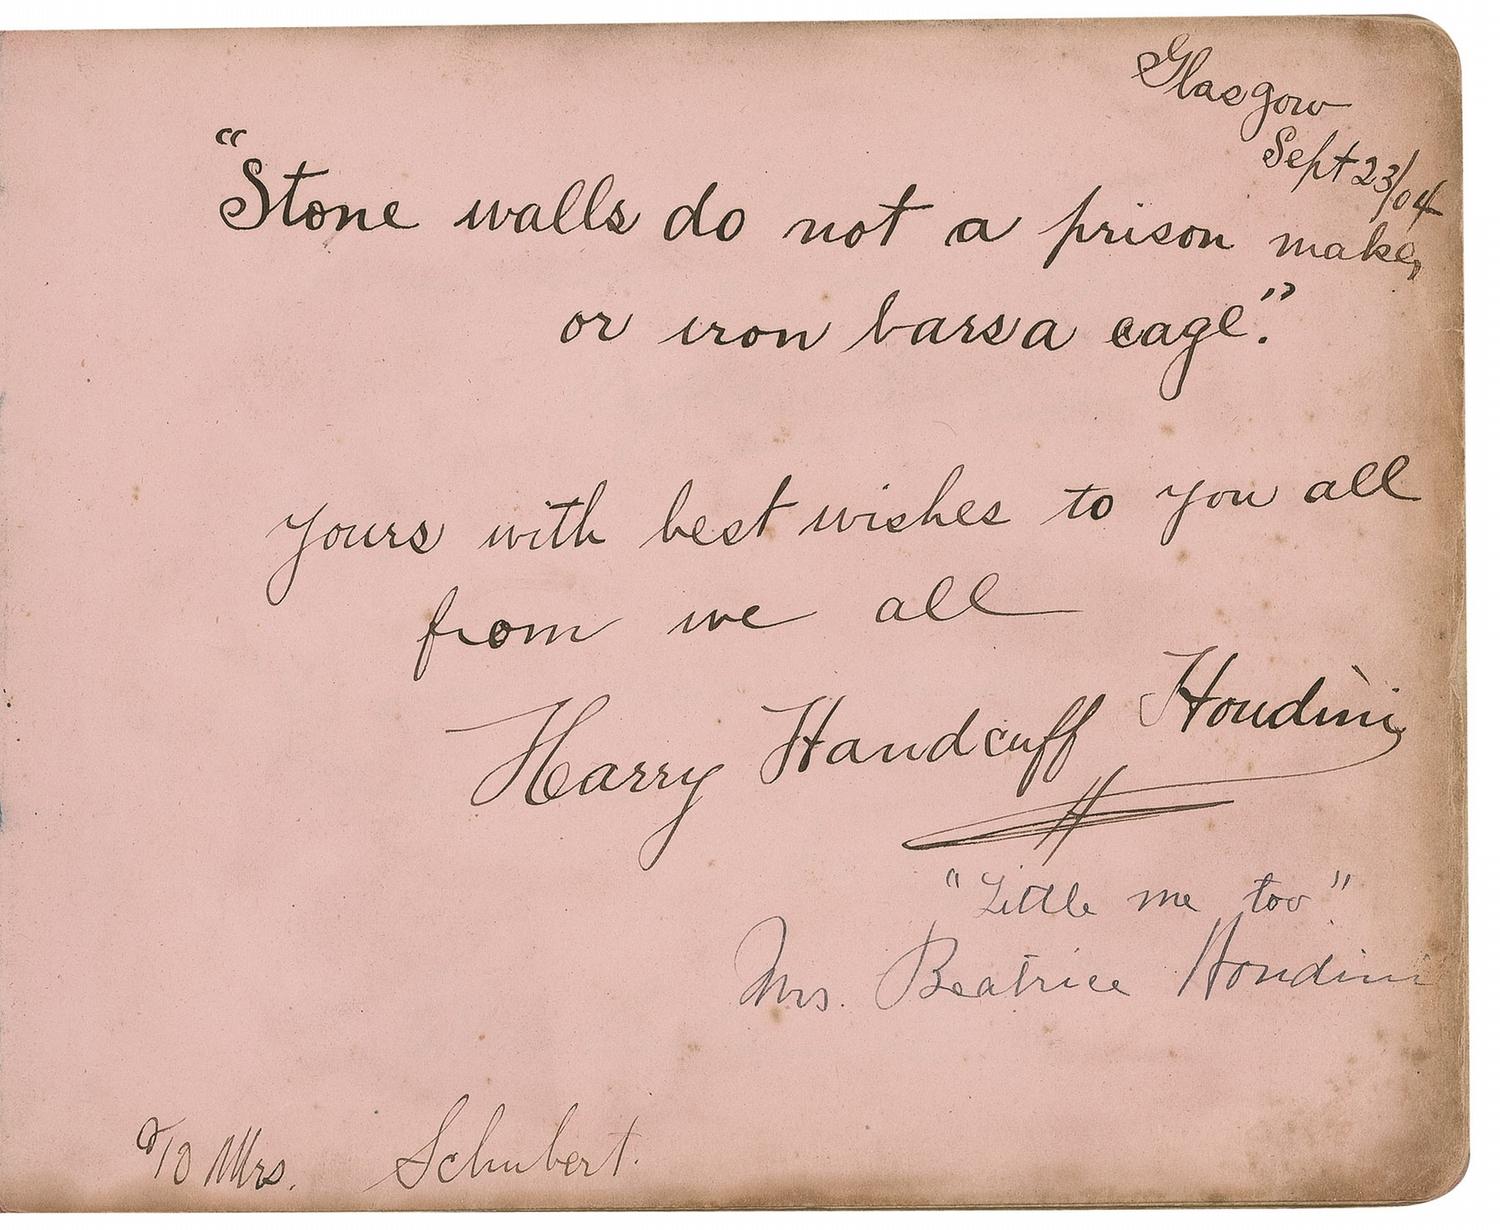 Glasgow
Sept 23/04
"Stone walls do not a prison make,
or iron bars a cage".
Yours with best wishes to you all
from we all
Harry Handcuff Houdini
"Little me too"
Mrs. Beatrice Houdini
To Mrs. Schubert.